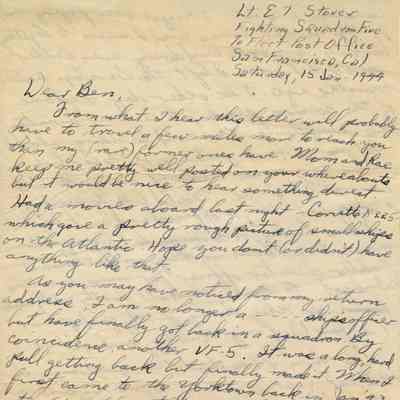 Lt. E T Stover
Fighting Squadron Five
℅ Fleet Post Office
San Francisco, Cal
Saturday, 15 Jan 1944
Dear Ben,
From what I hear this letter will probably
have to travel a few miles more to reach you
than my (rare) former ones have. Mom and Rae
keep me pretty well posted on your whereabouts
but it would be nice to hear something direct
Had a movies aboard last night - Corvette K 225
which gave a pretty rough picture of small ships
on the Atlantic Hope you don't (or didn't) have
anything like that.
As you may have noticed from my return
address I am no longer a ships officer
but have finally got back in a squadron By
coincidence another VF-5. It was a long, hard
pull getting back but finally made it. When I
first came to the Yorktown back in